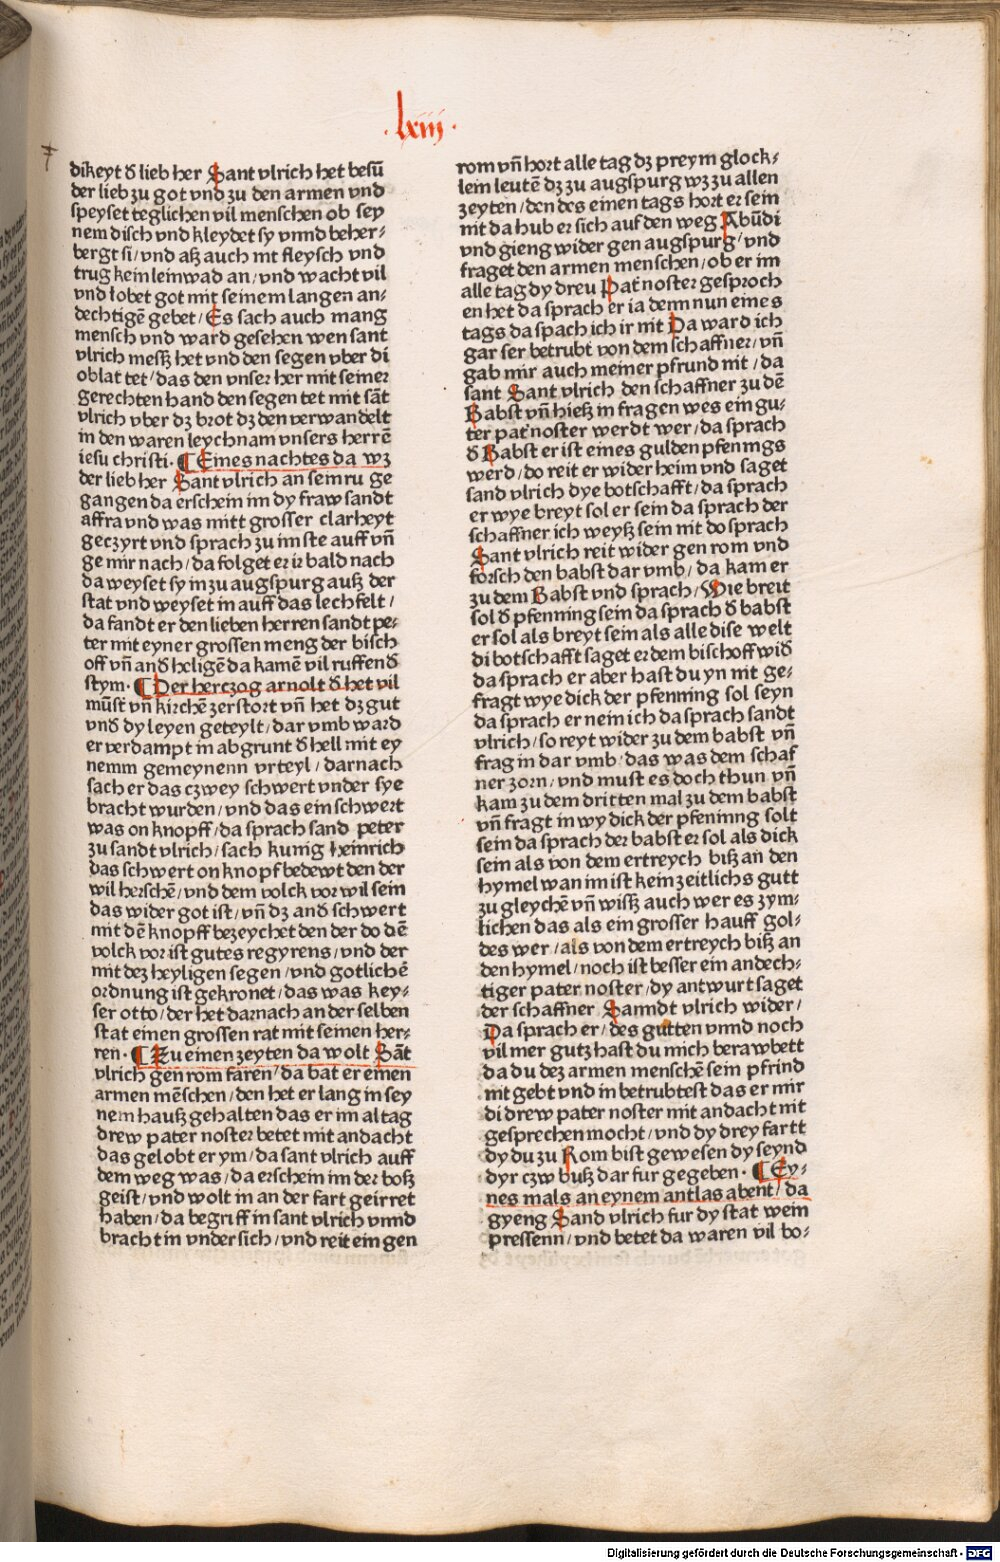 .lxiii.
dikeyt đ lieb her Sant vlrich het besū
der lieb zu got vnd zu den armen vnd
speyset teglichen vil menschen ob sey
nem disch vnd kleydet sy vnnd beher⸗
bergt si/vnd aß auch mt fleysch vnd
trug kein leinwad an/vnd wacht vil
vnd lobet got mit seinem langen an⸗
dechtigē gebet/Es sach auch mang
mensch vnd ward gesehen wen sant
vlrich messz het vnd den segen vber di
oblat tet/das den vnser her mit seiner
gerechten hand den segen tet mit sāt
vlrich vber dz brot dz den verwandelt
in den waren leychnam vnsers herrē
iesu christi. ¶ Eines nachtes da wz
der lieb her Sant vlrich an sein ru ge
gangen da erschein im dy fraw sandt
affra vnd was mitt grosser clarheyt
geczyrt vnd sprach zu im ste auff vn̄
ge mir nach/da folget er ir bald nach
da weyset sy in zu augspurg auß der
stat vnd weyset in auff das lechfelt/
da fandt er den lieben herren sandt pe⸗
ter mit eyner grossen meng der bisch
off vn̄ anđ heligē da kamē vil ruffenđ
stym. ¶ Der herczog arnolt đ het vil
mūst vn̄ kirchē zerstort vn̄ het dz gut
vnđ dy leyen geteylt/dar vmb ward
er verdampt in abgrunt đ hell mit ey
nemm gemeynenn vrteyl/darnach
sach er das czwey schwert vnder sye
bracht wurden/vnd das ein schwert
was on knopff/da sprach sand peter
zu sandt vlrich/sach kunig heinrich
das schwert on knopf bedewt den der
wil herschē/vnd dem volck vor wil sein
das wider got ist/vn̄ dz anđ schwert
mit dē knopff bezeychet den der do dē
volck vor ist gutes regyrens/vnd der
mit dez heyligen segen/vnd gotlichē
ordnung ist gekronet/das was key⸗
ser otto/der het darnach an der selben
stat einen grossen rat mit seinen her⸗
ren. ¶ Zu einen zeyten da wolt Sāt
vlrich gen rom faren/da bat er einen
armen mēschen/den het er lang in sey
nem hauß gehalten das er im al tag
drew pater noster betet mit andacht
das gelobt er ym/da sant vlrich auff
dem weg was/da erschein im der boß
geist/vnd wolt in an der fart geirret
haben/da begriff in sant vlrich vnnd
bracht in vnder sich/vnd reit ein gen
rom vn̄ hort alle tag dz preym glock⸗
lein leutē dz zu augspurg wz zu allen
zeyten/den des einen tags hort er sein
nit da hub er sich auf den weg Abūdi
vnd gieng wider gen augspurg/vnd
fraget den armen menschen/ob er im
alle tag dy dreu Pat̉noster gesproch
en het da sprach er ia denn nun eines
tags da spach ich ir nit Da ward ich
gar ser betrubt von dem schaffner/vn̄
gab mir auch meiner pfrund nit/da
sant Sant vlrich den schaffner zu dē
Babst vn̄ hieß in fragen wes ein gu⸗
ter pat̉noster werdt wer/da sprach
đ Babst er ist eines gulden pfennigs
werd/do reit er wider heim vnd saget
sand vlrich dye botschafft/da sprach
er wye breyt sol er sein da sprach der
schaffner ich weyß sein nit do sprach
Sant vlrich reit wider gen rom vnd
forsch den babst dar vmb/da kam er
zu dem Babst vnd sprach/Wie breit
sol đ pfenning sein da sprach đ babst
er sol als breyt sein als alle dise welt
di botschafft saget er dem bischoff wiđ
da sprach er aber hast du yn nit ge⸗
fragt wye dick der pfenning sol seyn
da sprach er nein ich da sprach sandt
vlrich/so reyt wider zu dem babst vn̄
frag in dar vmb/das was dem schaf
ner zorn/vnd must es doch thun vn̄
kam zu dem dritten mal zu dem babst
vn̄ fragt in wy dick der pfenning solt
sein da sprach der babst er sol als dick
sein als von dem ertreych biß an den
hymel wan im ist kein zeitlichs gutt
zu gleychē vn̄ wissz auch wer es zym⸗
lichen das als ein grosser hauff gol⸗
des wer/als von dem ertreych biß an
den hymel/noch ist besser ein andech⸗
tiger pater noster/dy antwurt saget
der schaffner Sanndt vlrich wider/
Da sprach er/des gutten vnnd noch
vil mer gutz hast du mich berawbett
da du dez armen menschē sein pfrind
nit gebt vnd in betrubtest das er mir
di drew pater noster mit andacht nit
gesprechen mocht/vnd dy drey fartt
dy du zu Rom bist gewesen dy seynd
dyr czw buß dar fur gegeben. ¶ Ey⸗
nes mals an eynem antlas abent/da
gyeng Sand vlrich fur dy stat wein
pressenn/vnd betet da waren vil bo⸗
Digitalisierung gefördert durch die Deutsche Forschungsgemeinschaft - DFG